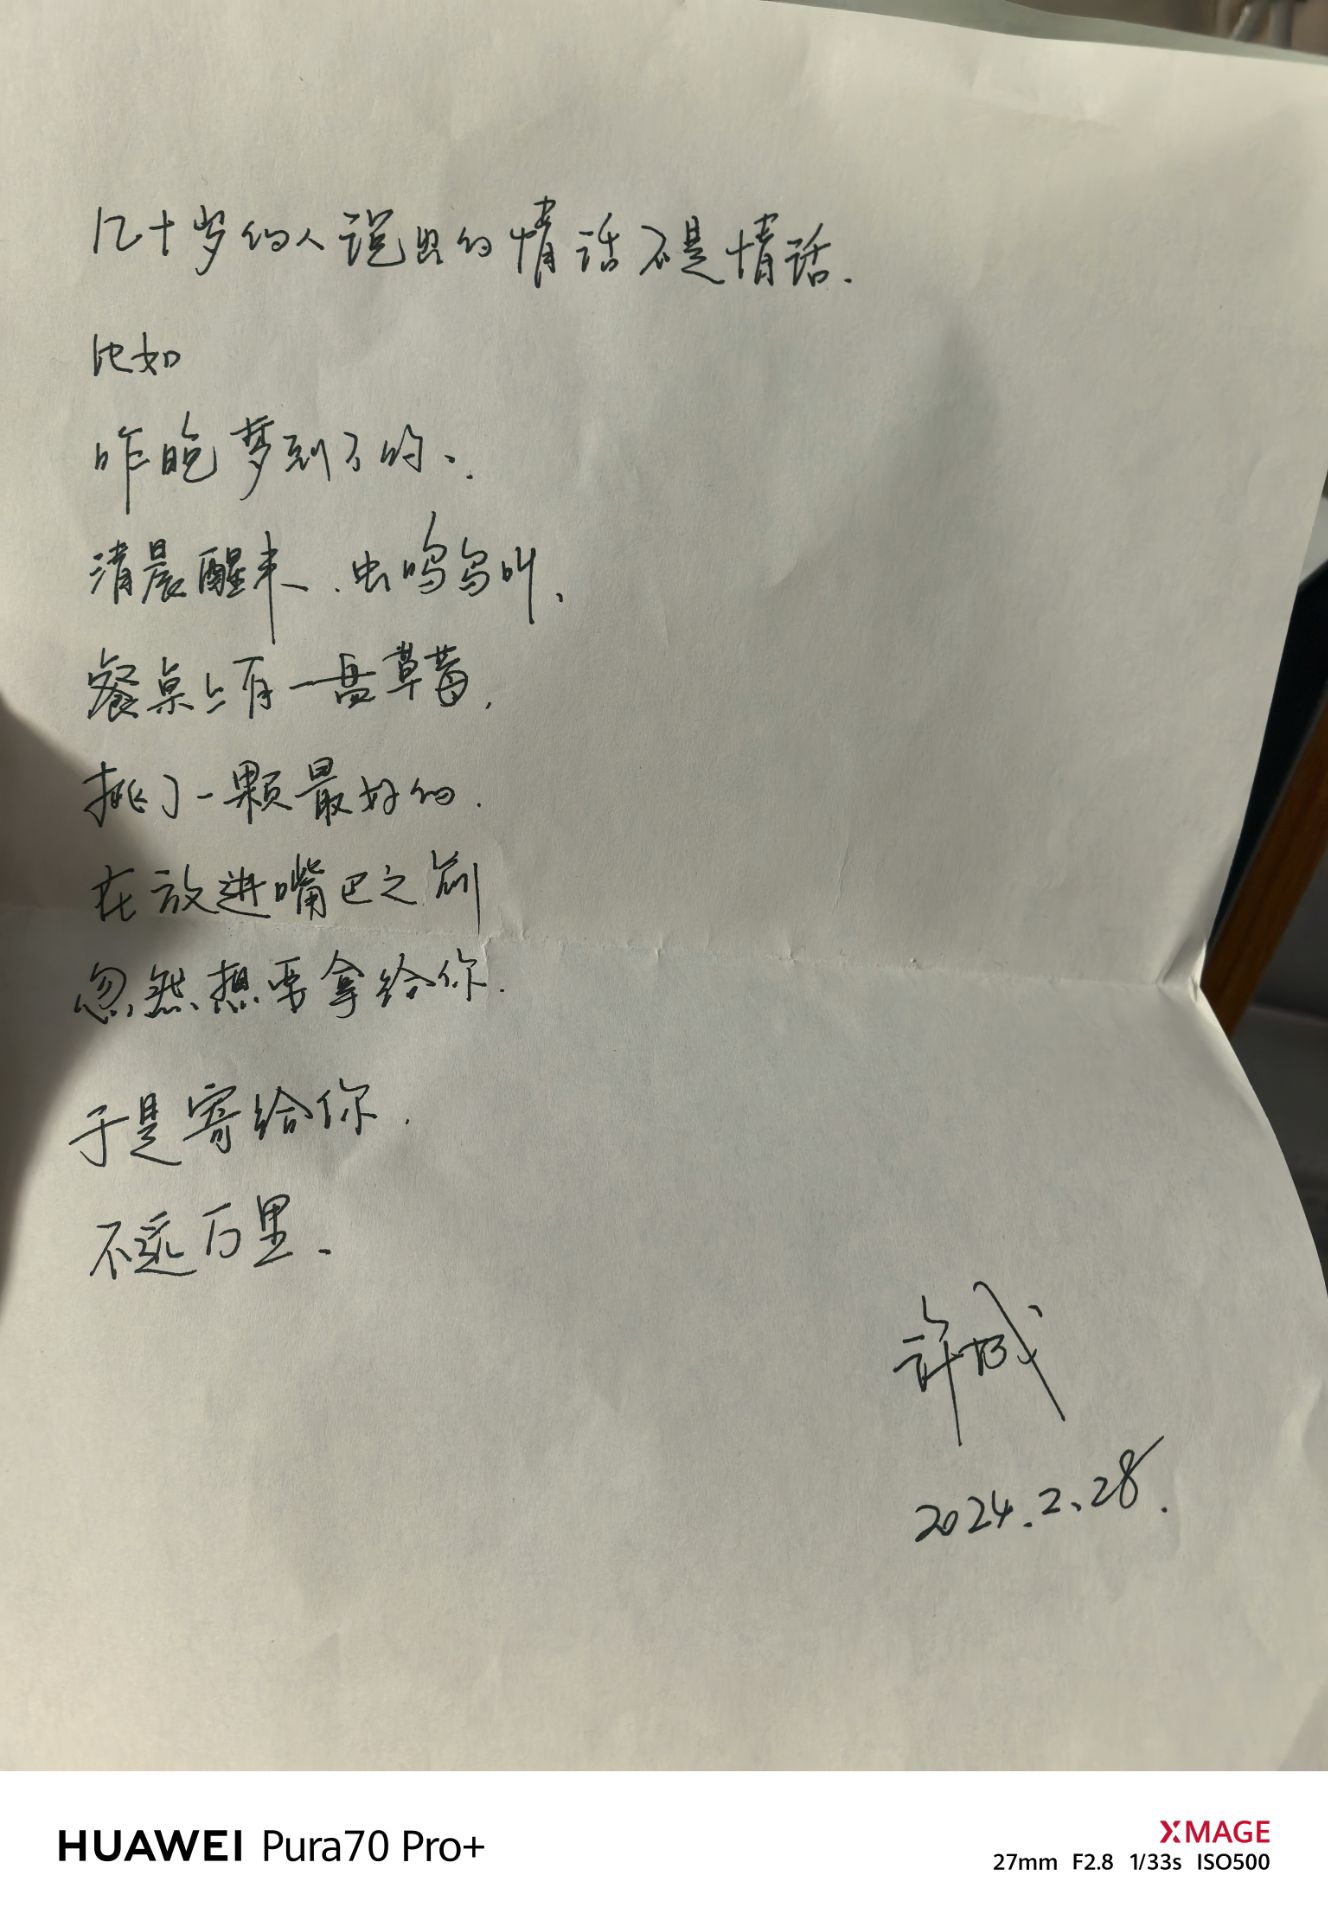 几十岁的人说出的情话不是情话.
比如
昨晚梦到了的、.
清晨醒来、虫鸣鸟叫、
餐桌上有一盘草莓,
挑了一颗最好的.
在放进嘴巴之前
忽然想要拿给你.
于是寄给你.
不远万里、
许城
2024.2.28.
HUAWEI Pura70 Pro+
XMAGE
27mm F2.8 1/33s ISO500